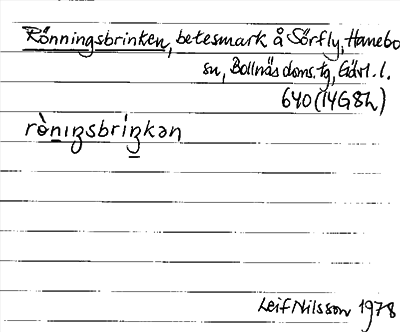 Rönningsbrinken, betesmark å Sörfly, Hanebo
sn, Bollnäs doms. tg, Gävl. l.
640 (14G8h)
rò̱nıŋsbriŋ̱kən
Leif Nilsson 1978